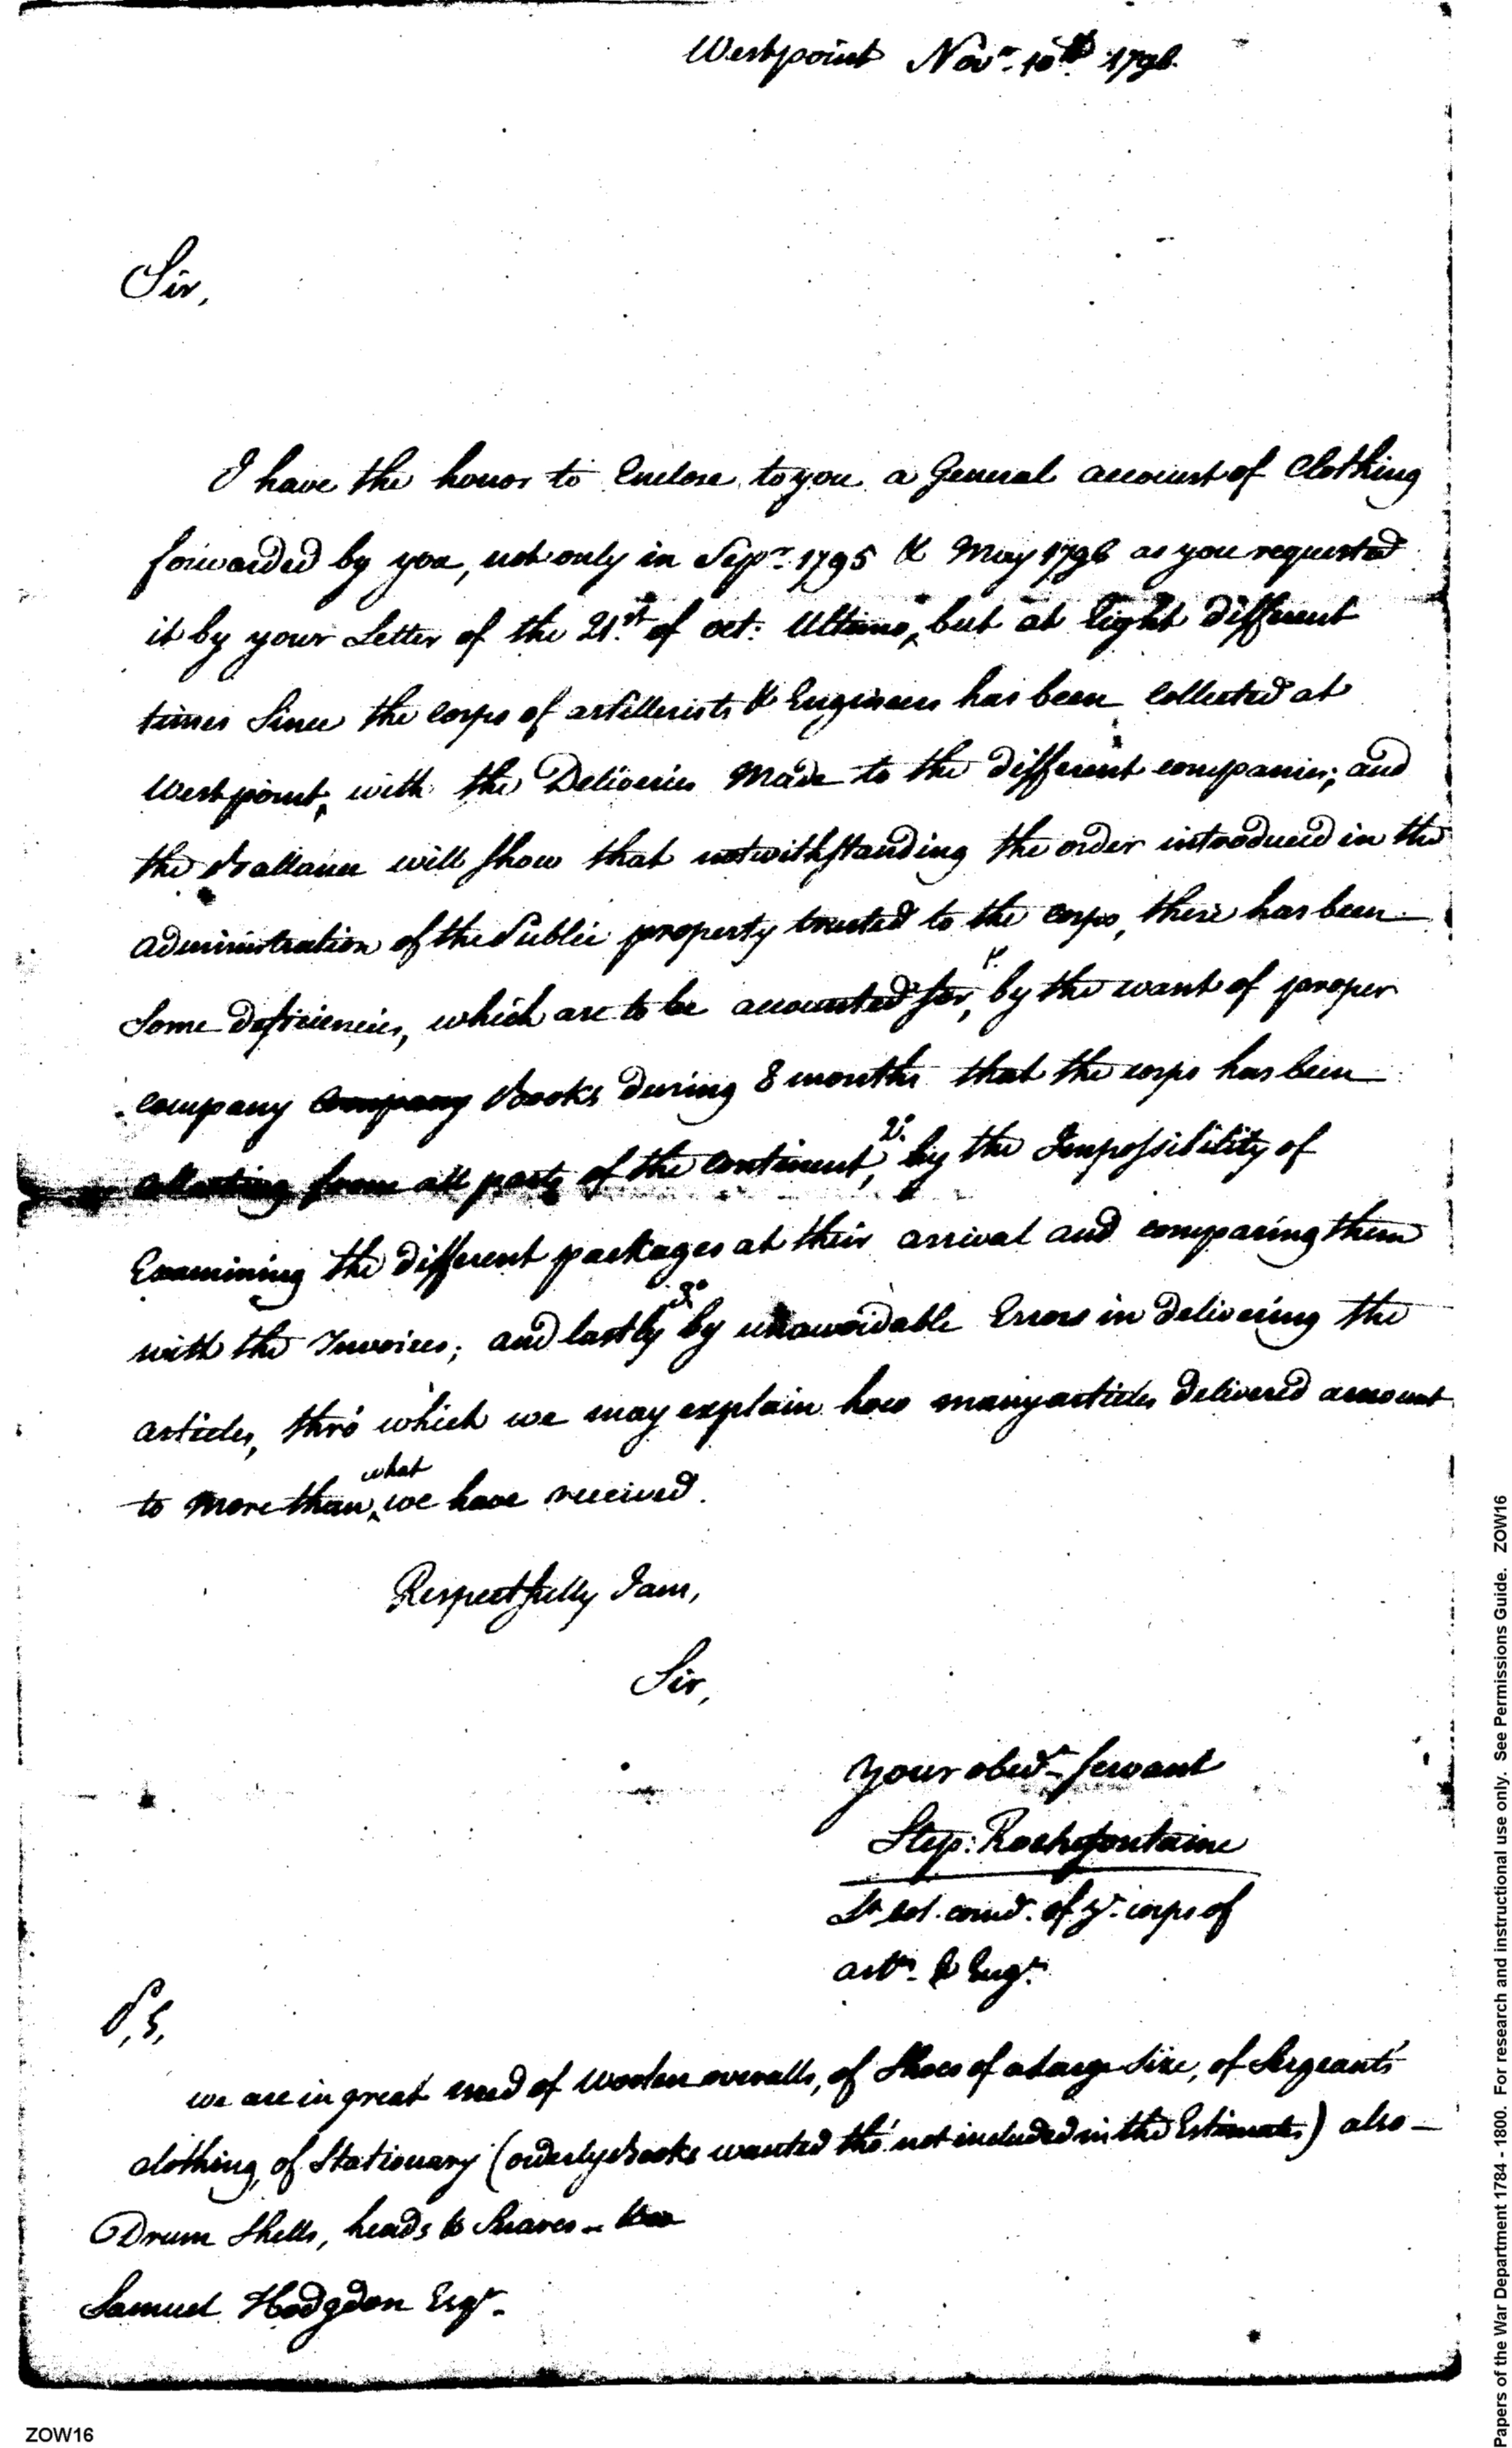 Westpoint Novr. 10th 1796.
Sir,
I have the honor to Enclose to you a General account of Clothing
forwarded by you, not only in Sepr. 1795 & May 1796 as you requested
it by your Letter of the 21.st of oct: Ultimo, but at Eight different
times Since the corps of artillerists & Engineers has been Collected at
Westpoint, with the Deliveries Made to the different companies; and
the Ballance will show that notwithstanding the order introduced in the
administration of the Public property trusted to the corps, there has been
Some deficiencies, which are to be accounted for, 1°. by the want of proper
company company Books during 8 months that the corps has been
collecting from all parts of the Continent, 2°. by the Impossibility of
Examining the different packages at their arrival and comparing them
with the Invoices; and lastly 3° by unavoidable Errors in delivering the
articles, thro' which we may explain how many articles delivered amount
to more than what we have received.
Respectfully I am,
Sir,
your obedt. servant
Step: Rochefontaine
Lt Col. comdt. of ye. corps of
artts. & Engrs.
P,S,
we are in great need of woolen overalls, of Shoes of a large Size, of Sergeants
clothing, of Stationary (orderly Books wanted tho' not included in the Estimate) also
Drum Shells, heads & Snares -
Samuel Hodgdon Esqr.
ZOW16
Papers of the War Department 1784 - 1800. For research and instructional use only. See Permissions Guide. ZOW16